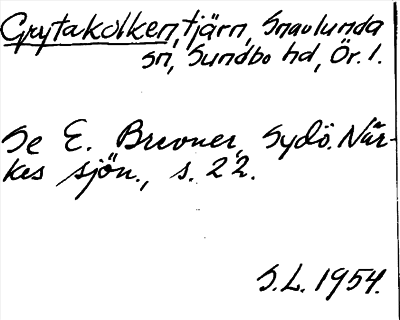 Grytakolken, tjärn, Snavlunda
sn, Sundbo hd, Ör. l.
Se E. Brevner, Sydö. När-
kes sjön., s. 22.
S.L. 1954.